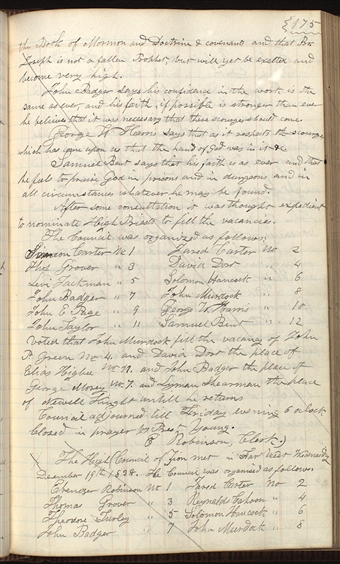 175
the Book of Mormon and Doctrine & covenants and that Br
Joseph is not a fallen Prophet, but will yet be exalted and
become very high.
John Badger says his confidence in the work is the
same as ever, and his faith, if possible is stronger than ever
he believes that it was necessary that these scourges should come.
George W. Harris says that as it respects the scourge
which has come upon us that the hand of God was in it &c
Samuel Bent says that his faith is as ever and that
he feels to praise God in prisons and in dungeons and in
all circumstances whatever he may be found.
After some consultation it was thought expedient
to nominate High Priests to fill the vacancies.
The Council was organized as follows,
Simeon Carter No 1 Jared Carter No 2
Thos Grover " 3 David Dort " 4
Levi Jackman " 5 Solomon Hancock " 6
John Badger " 7 John Murdock " 8
John E Page " 9 George W. Harris " 10
John Taylor " 11 Samuel Bent " 12
Voted that John Murdock fill the vacancy of John
P. Green No 4. and David Dort the place of
Elias Higbee No 11. and John Badger the place of
George Morey No 7. and Lyman Shearman the place
of Newell Knight untill he returns
Council adjourned till Friday evening 6 o'clock
Closed in prayer by Pres. Young.
E Robinson, Clerk.
The High Council of Zion met in Far West Wednesday
December 19th 1838. The Council was organized as follows
Ebenezer Robinson No 1 Jared Carter No 2
Thomas Grover " 3 Reynolds Cahoon " 4
Theodore Turley " 5 Solomon Hancock " 6
John Badger " 7 John Murdock " 8